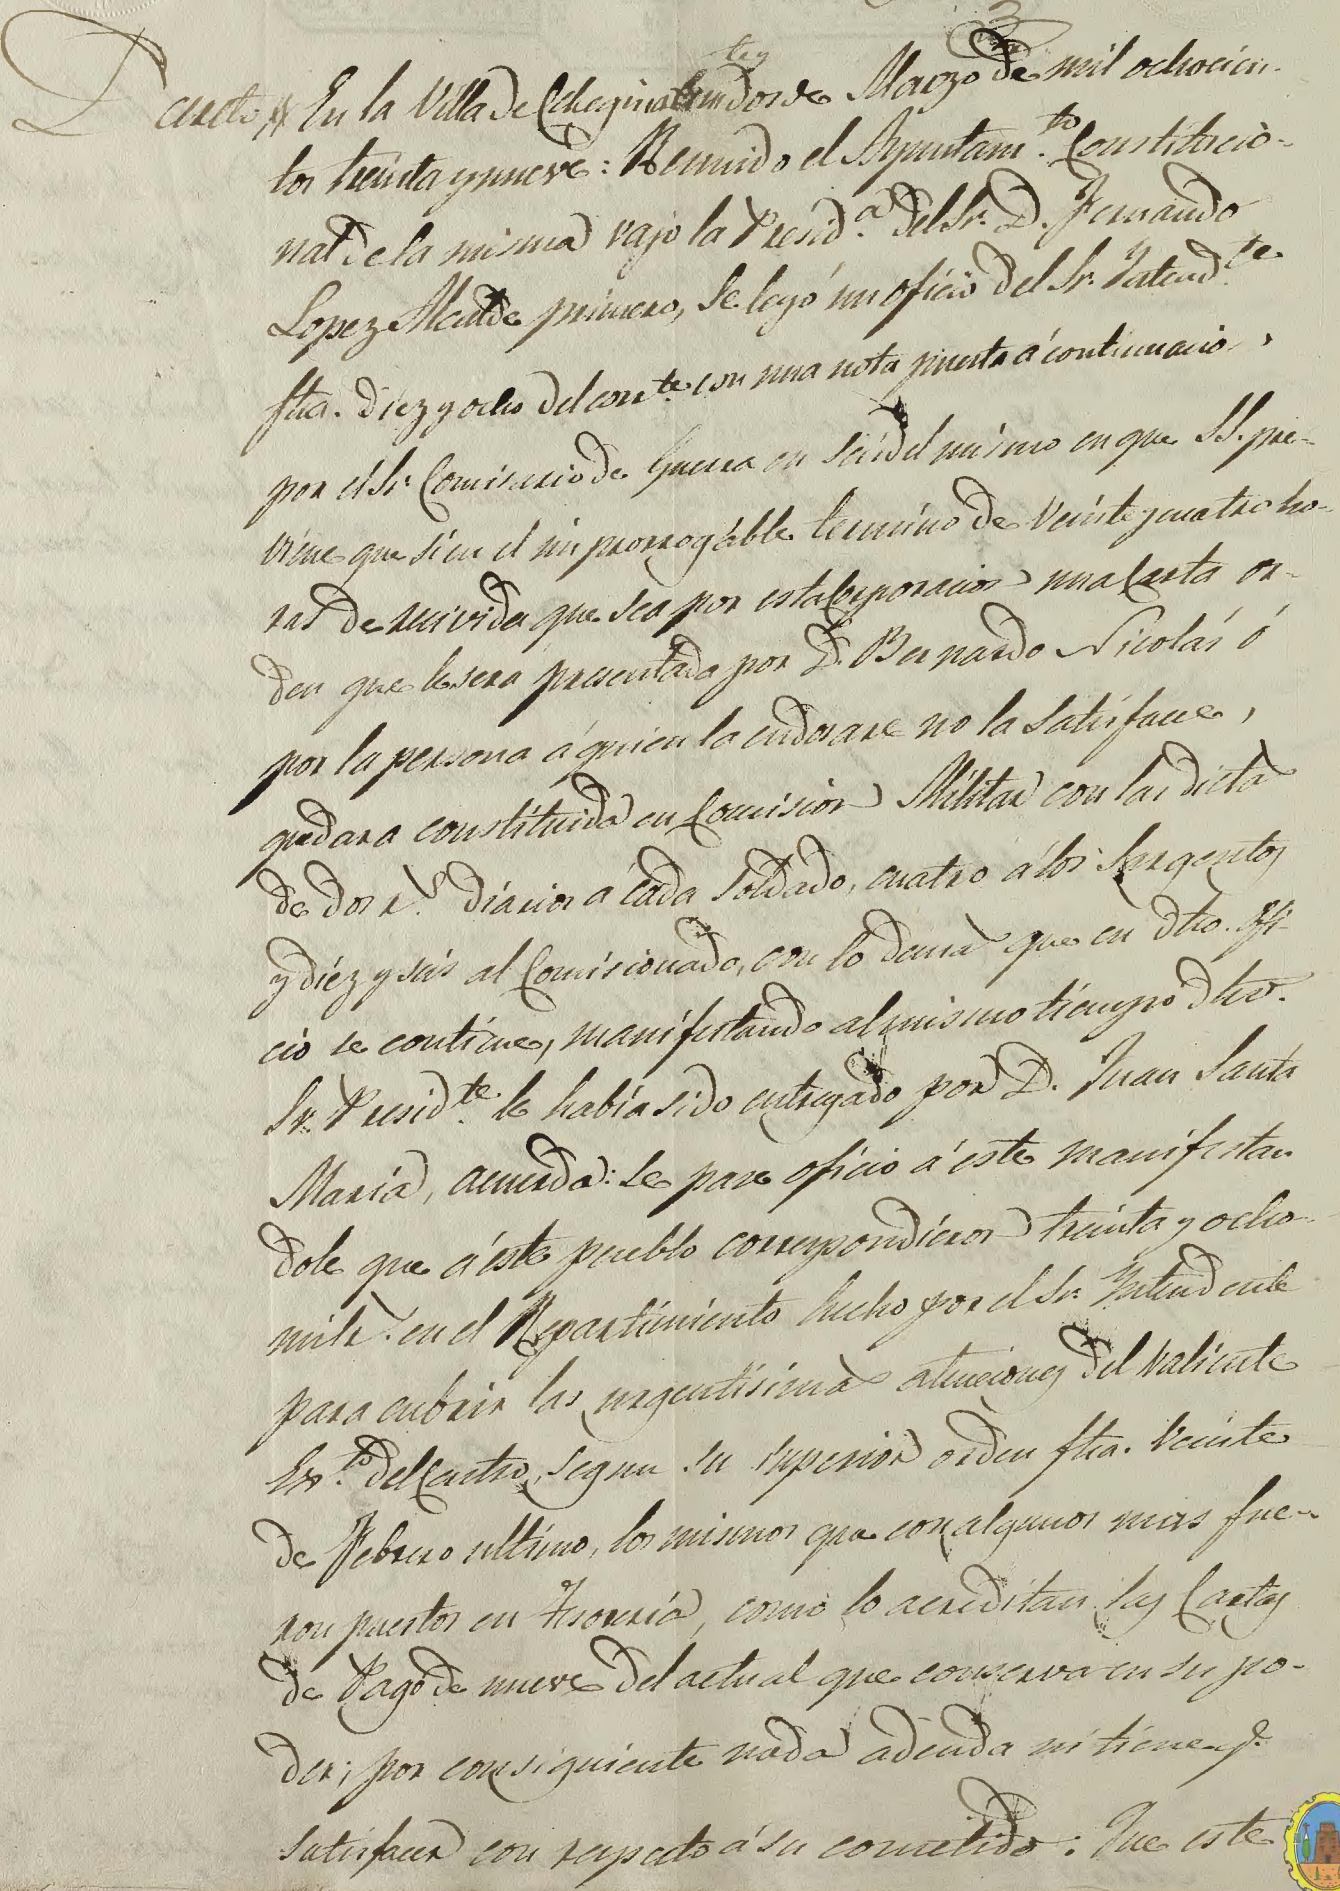 Decreto En la Villa de Cehegin a veinte y dos de Marzo de mil ochocien-
tos treinta y nueve: Reunido el Ayuntam.to Constitucio-
nal de la misma vajo la Presid.a del Sr. D. Fernando
Lopez Alcalde primero, se leyó un oficio del Sr. Intend.te
fha. diez y ocho del corr.te con una nota puesta á continuacion
por el Sr. Comisario de Guerra en seis del mismo en que SS. pre-
viene que si en el improrrogáble termino de veinte y cuatro ho-
ras de recivida que sea por esta Corporacion una Carta or-
den que le sera presentada por D. Bernardo Nicolás ó
por la persona á quien la endosare no la satisface,
quedara constituida en Comision Militar con las dietas
de dos r.s diarios á cada soldado, cuatro á los Sargentos
y diez y seis al Comisionado, con lo demas que en dho. ofi-
cio se contiene, manifestando al mismo tiempo dho.
Sr. Presid.te le había sido entregado por D. Juan Santa
María, acuerda: Se pase oficio á este manifestan
dole que á éste pueblo correspondieron treinta y ocho
mil r.s en el Repartimiento hecho por el Sr. Intendente
para cubrir las urgentísimas atenciones del valiente
Ex.to del Centro, segun su superior orden fha. veinte
de Febrero ultimo, los mismos que con algunos mas fue-
ron puestos en Tesorería, como lo acreditan las Cartas
de Pago de nueve del actual que conserva en su po-
der; por consiguiente nada adeuda ni tiene q.e
satisfacer con respecto á su cometido: Que este